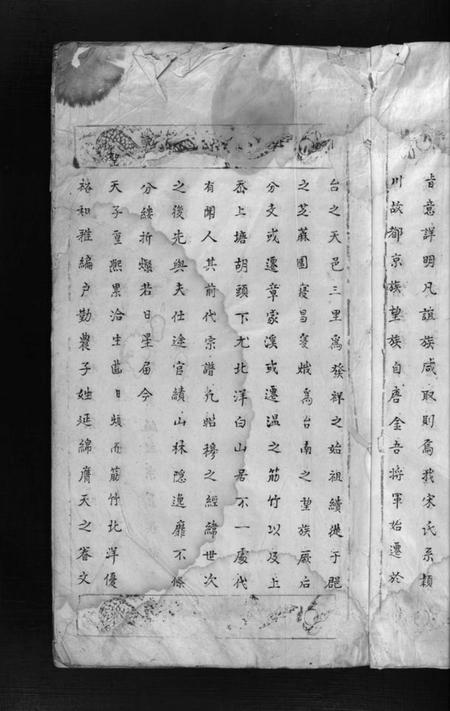 肯意譯明凡誼族咸取則焉我宋氏系穎
川故都京族望族自唐金吾將軍始遷於
台之天邑三里為發祥之始祖續遷于郡
之芝蔴園寖昌寖熾為台南之望族厥后
分支或遷章家溪或遷溫之筋竹以及上
岙上塘胡頭下尤北洋白山居不一處代
有聞人其前代宗譜凡昭穆之經緯世次
之後先與夫仕途官績山林隱逸靡不條
分縷折爛若日星届今
天子重熙累洽生齒日頻而筋竹北洋優
裕和雅編户勤農子姓延綿膺天之眷文